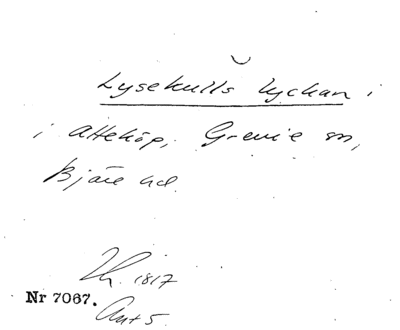 Lysekulls lyckan i
i Atteköp, Grevie sn,
Bjäre hd.
Th. 1817
Nr 7067.
Ant 5.